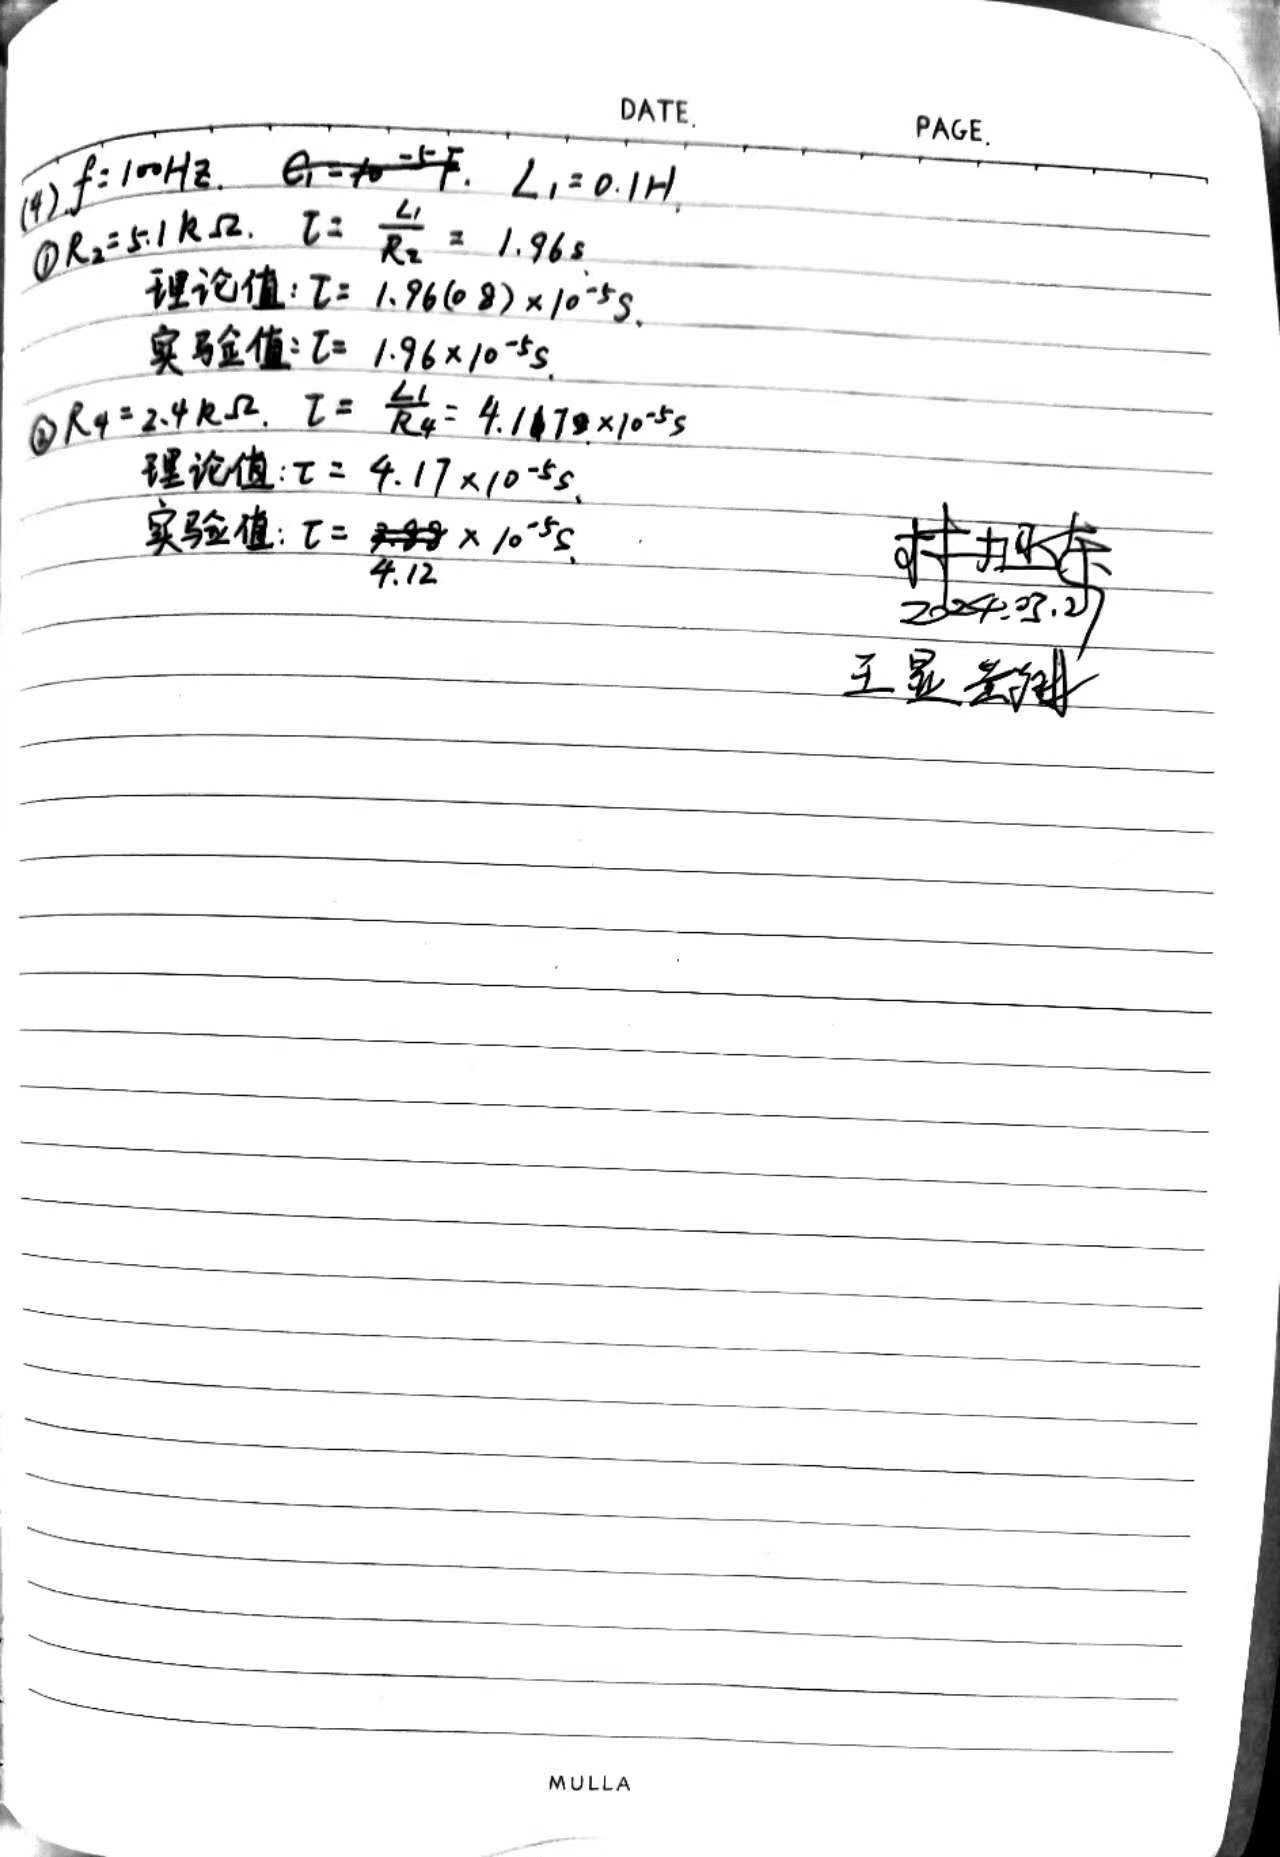 DATE.
PAGE.
(4) f=100Hz. L₁=0.1H.
① R₂=5.1kΩ. τ= L₁/R₂ = 1.96s
理论值:τ= 1.96(08)×10⁻⁵s.
实验值:τ= 1.96×10⁻⁵s.
② R₄=2.4kΩ. τ= L₁/R₄ = 4.17×10⁻⁵s
理论值:τ= 4.17×10⁻⁵s.
实验值:τ= 4.12 ×10⁻⁵s.
2024.03.27
王显
MULLA